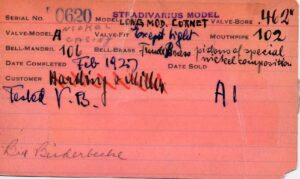 STRADIVARIUS MODEL
SERIAL No. 0620 MODEL LONG MOD. CORNET VALVE-BORE .462"
VALVE-MODEL A VALVE-FIT Except light MOUTHPIPE 102
BELL-MANDRIL 106 BELL-BRASS Brass pistons of special nickel composition
DATE COMPLETED Feb 1927 DATE SOLD
CUSTOMER Harding & Miller
Tested V.B. A1
Bix Beiderbecke